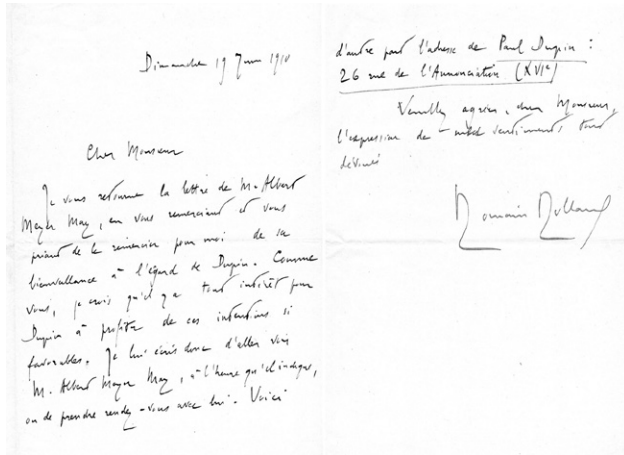 Dimanche 19 Juin 1910
Cher Monsieur
Je vous retourne la lettre de M. Albert
Meyer May, en vous remerciant et vous
priant de le remercier pour moi de sa
bienveillance à l'égard de Dupin. Comme
vous, je crois qu'il y a tout intérêt pour
Dupin à profiter de ces intentions si
favorables. Je lui écris donc d'aller voir
M. Albert Mayer May, à l'heure qu'il indique,
ou de prendre rendez-vous avec lui. Voici
d'autre part l'adresse de Paul Dupin :
26 rue de l'Annonciation (XVIe)
Veuillez agréer, cher Monsieur,
l'expression de mes sentiments tout
dévoués
Romain Rolland